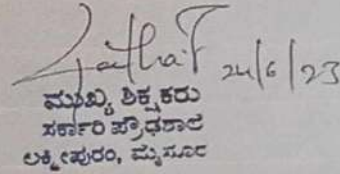 24/6/23
ಮುಖ್ಯ ಶಿಕ್ಷಕರು
ಸರ್ಕಾರಿ ಪ್ರೌಢಶಾಲೆ
ಲಕ್ಷ್ಮೀಪುರಂ, ಮೈಸೂರು